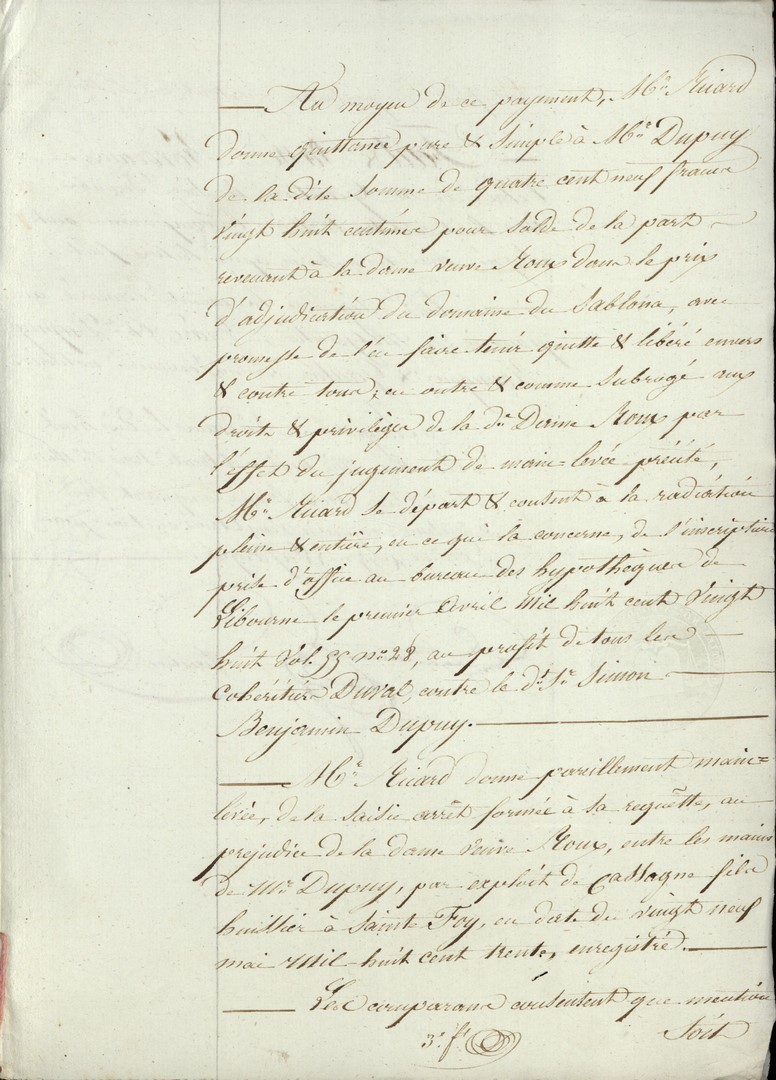 — Au moyen de ce payement, Me Ricard
donne quittance pure & simple à Mr Dupuy
de la dite somme de quatre cent neuf francs
vingt huit centimes pour solde de la part —
revenant à la dame veuve Roux dans le prix
d'adjudication du domaine du Sablona, avec
promesse de l'en faire tenir quitte & libéré envers
& contre tous; en outre & comme subrogé aux
droits & privilèges de la de Dame Roux par
l'effet du jugement de main-levée précité,
Me Ricard se départ & consent à la radiation
pleine & entière, en ce qui la concerne, de l'inscription
prise d'office au bureau des hypothèques de
Libourne le premier avril mil huit cent vingt
huit Vol. 55 no 28, au profit de tous les —
Cohéritiers Duval, contre le dt Sr Simon —
Benjamin Dupuy. —
— Me Ricard donne pareillement main=
levée, de la saisie arrêt formée à sa requête, au
prejudice de la dame veuve Roux, entre les mains
de Mr Dupuy, par exploit de Cassagne fils
huissier à Sainte Foy, en date du vingt neuf
mai mil-huit cent trente, enregistré. —
— Les comparans consentent que mention
3e ft
Soit